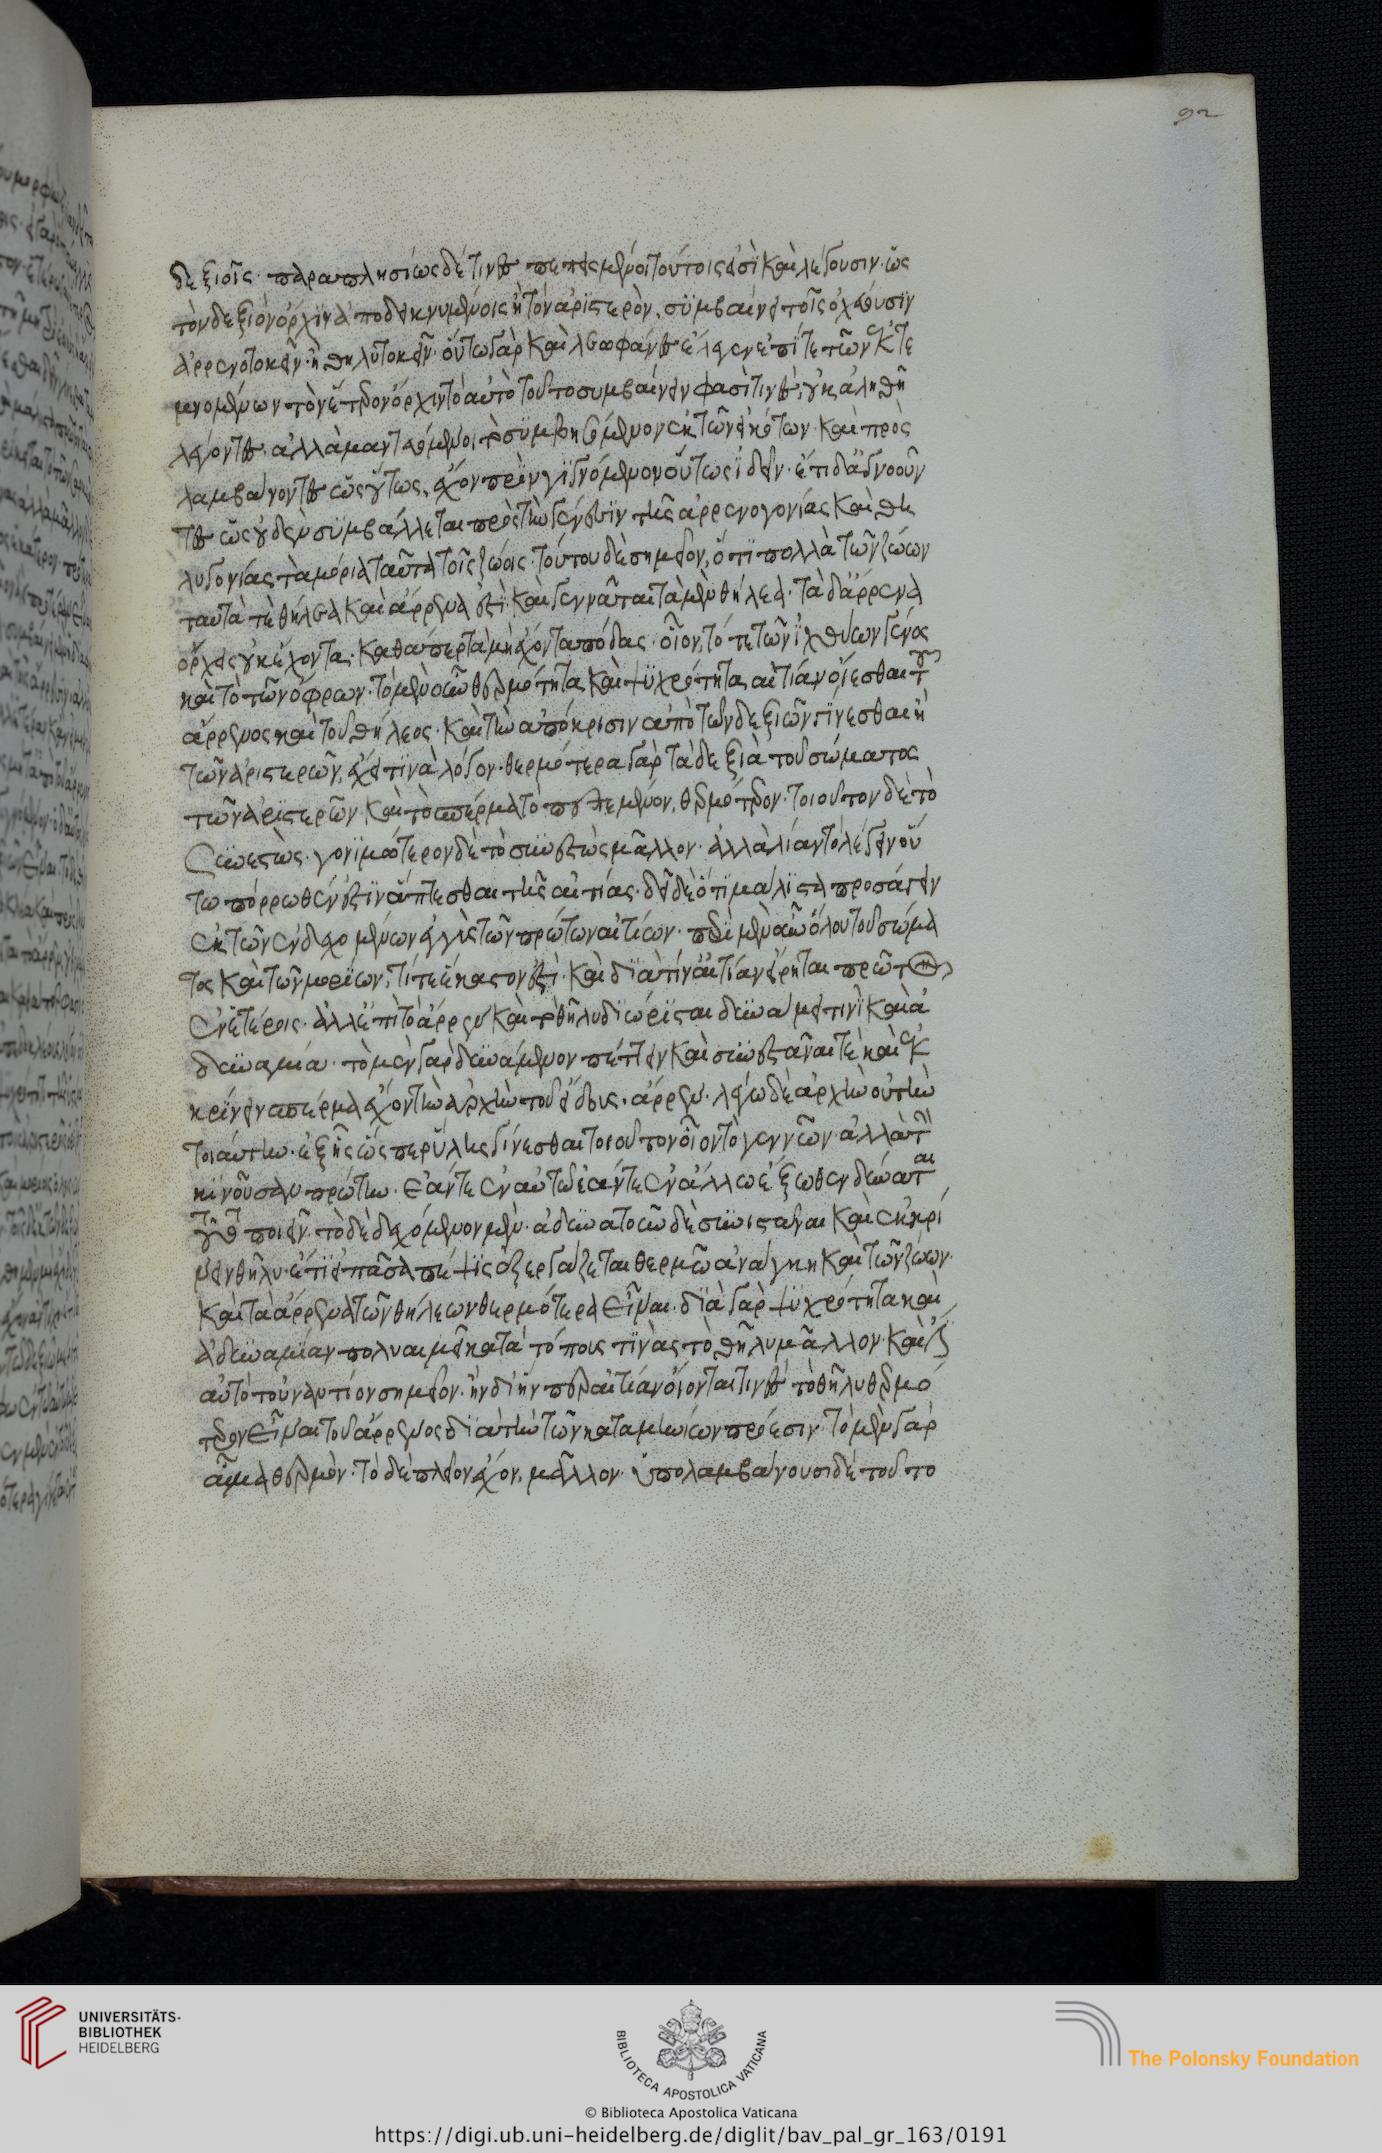 92
δεξιοῖς· παραπλησίως δέ τινες πεπεισμένοι τούτοις εἰσὶ καὶ λέγουσιν· ὡς
τὸν δεξιὸν ὄρχιν ἀποδεικνυμένοις ἢ τὸν ἀριστερὸν, συμβαίνει τοῖς ὀχεύουσιν
ἀρρενοτοκεῖν· ἢ θηλυτοκεῖν· οὕτω γὰρ καὶ λεωφάνης ἔλεγεν ἐπί τε τῶν ἐκτε
μνομένων τὸν ἕτερον ὄρχιν τὸ αὐτὸ τοῦτο συμβαίνειν φασί τινες, οὐκ ἀληθῆ
λέγοντες· ἀλλὰ μαντευόμενοι τὸ συμβησόμενον ἐκ τῶν εἰκότων· καὶ προ
λαμβάνοντες ὡς οὕτως ἔχον πρὶν γιγνόμενον οὕτως ἰδεῖν· ἔτι δ' ἀγνοοῦν
τες ὡς οὐδὲν συμβάλλεται πρὸς τὴν γένεσιν τῆς ἀρρενογονίας καὶ θη
λυγονίας τὰ μόρια ταῦτα τοῖς ζώοις· τούτου δὲ σημεῖον, ὅτι πολλὰ τῶν ζώων
ταῦτά τε θήλεα καὶ ἄρρενά ἐστι· καὶ γεννᾶται τὰ μὲν θήλεα· τὰ δ' ἄρρενα
ὄρχεις οὐκ ἔχοντα· καθάπερ τὰ μὴ ἔχοντα πόδας· οἷον, τό τε τῶν ἰχθύων γένος
καὶ τὸ τῶν ὄφεων· τὸ μὲν οὖν θερμότητα καὶ ψυχρότητα αἰτίαν οἴεσθαι τοῦ
ἄρρενος καὶ τοῦ θήλεος· καὶ τὴν ἀπόκρισιν ἀπὸ τῶν δεξιῶν γίνεσθαι ἢ
τῶν ἀριστερῶν, ἔχει τινὰ λόγον· θερμότερα γὰρ τὰ δεξιὰ τοῦ σώματος
τῶν ἀριστερῶν· καὶ τὸ σπέρμα τὸ πεπεμμένον, θερμότερον· τοιοῦτον δὲ τὸ
συνεστὼς· γονιμώτερον δὲ τὸ συνεστὼς μᾶλλον· ἀλλὰ λίαν τὸ λέγειν οὕ
τω πόρρωθέν ἐστιν ἅπτεσθαι τῆς αἰτίας· δεῖ δὲ ὅτι μάλιστα προσάγειν
ἐκ τῶν ἐνδεχομένων ἐγγὺς τῶν πρώτων αἰτίων· περὶ μὲν οὖν ὅλου τοῦ σώμα
τος καὶ τῶν μορίων, τί τε ἕκαστόν ἐστι· καὶ διὰ τίν' αἰτίαν εἴρηται πρῶτον
ἐν ἑτέροις· ἀλλ' ἐπὶ τὸ ἄρρεν καὶ τὸ θῆλυ διώρισται δυνάμει τινὶ καὶ ἀ
δυναμία· τὸ μὲν γὰρ δυνάμενον πέττειν καὶ συνεστάναι τὲ καὶ ἐκ
κρίνειν σπέρμα ἔχον τὴν ἀρχὴν τοῦ εἴδους· ἄρρεν· λέγω δὲ ἀρχὴν οὐ τὴν
τοιαύτην· ἐξ ἧς ὥσπερ ὕλης γίνεσθαι τοιοῦτον οἷον τὸ γεννῶν· ἀλλὰ τὴν
κινοῦσαν πρώτην· ἐάν τε ἐν αὐτῶ ἐάν τε ἐν ἄλλω ἔξωθεν δύναται
τοῦτο ποιεῖν· τὸ δὲ δεχόμενον μὲν· ἀδυνατοῦν δὲ συνιστάναι καὶ ἐκκρί
νειν θῆλυ· ἔτι εἰ πᾶσα πέψις ἐξεργάζεται θερμῶ ἀνάγκη καὶ τῶν ζώων·
καὶ τὰ ἄρρενα τῶν θηλέων θερμότερα εἶναι· διὰ γὰρ ψυχρότητα καὶ
ἀδυναμίαν πολυαιμεῖ κατὰ τόπους τινὰς τὸ θῆλυ μᾶλλον· καὶ ἔστιν
αὐτὸ τοὐναντίον σημεῖον· ἢ δι' ἥν περ αἰτίαν οἴονταί τινες τὸ θῆλυ θερμό
τερον εἶναι τοῦ ἄρρενος διὰ τὴν τῶν καταμηνίων πρόεσιν· τὸ μὲν γὰρ
αἷμα θερμὸν· τὸ δὲ πλεῖον ἔχον, μᾶλλον· ὑπολαμβάνουσι δὲ τοῦτο
UNIVERSITÄTS-
BIBLIOTHEK
HEIDELBERG
BIBLIOTECA APOSTOLICA VATICANA
The Polonsky Foundation
© Biblioteca Apostolica Vaticana
https://digi.ub.uni-heidelberg.de/diglit/bav_pal_gr_163/0191